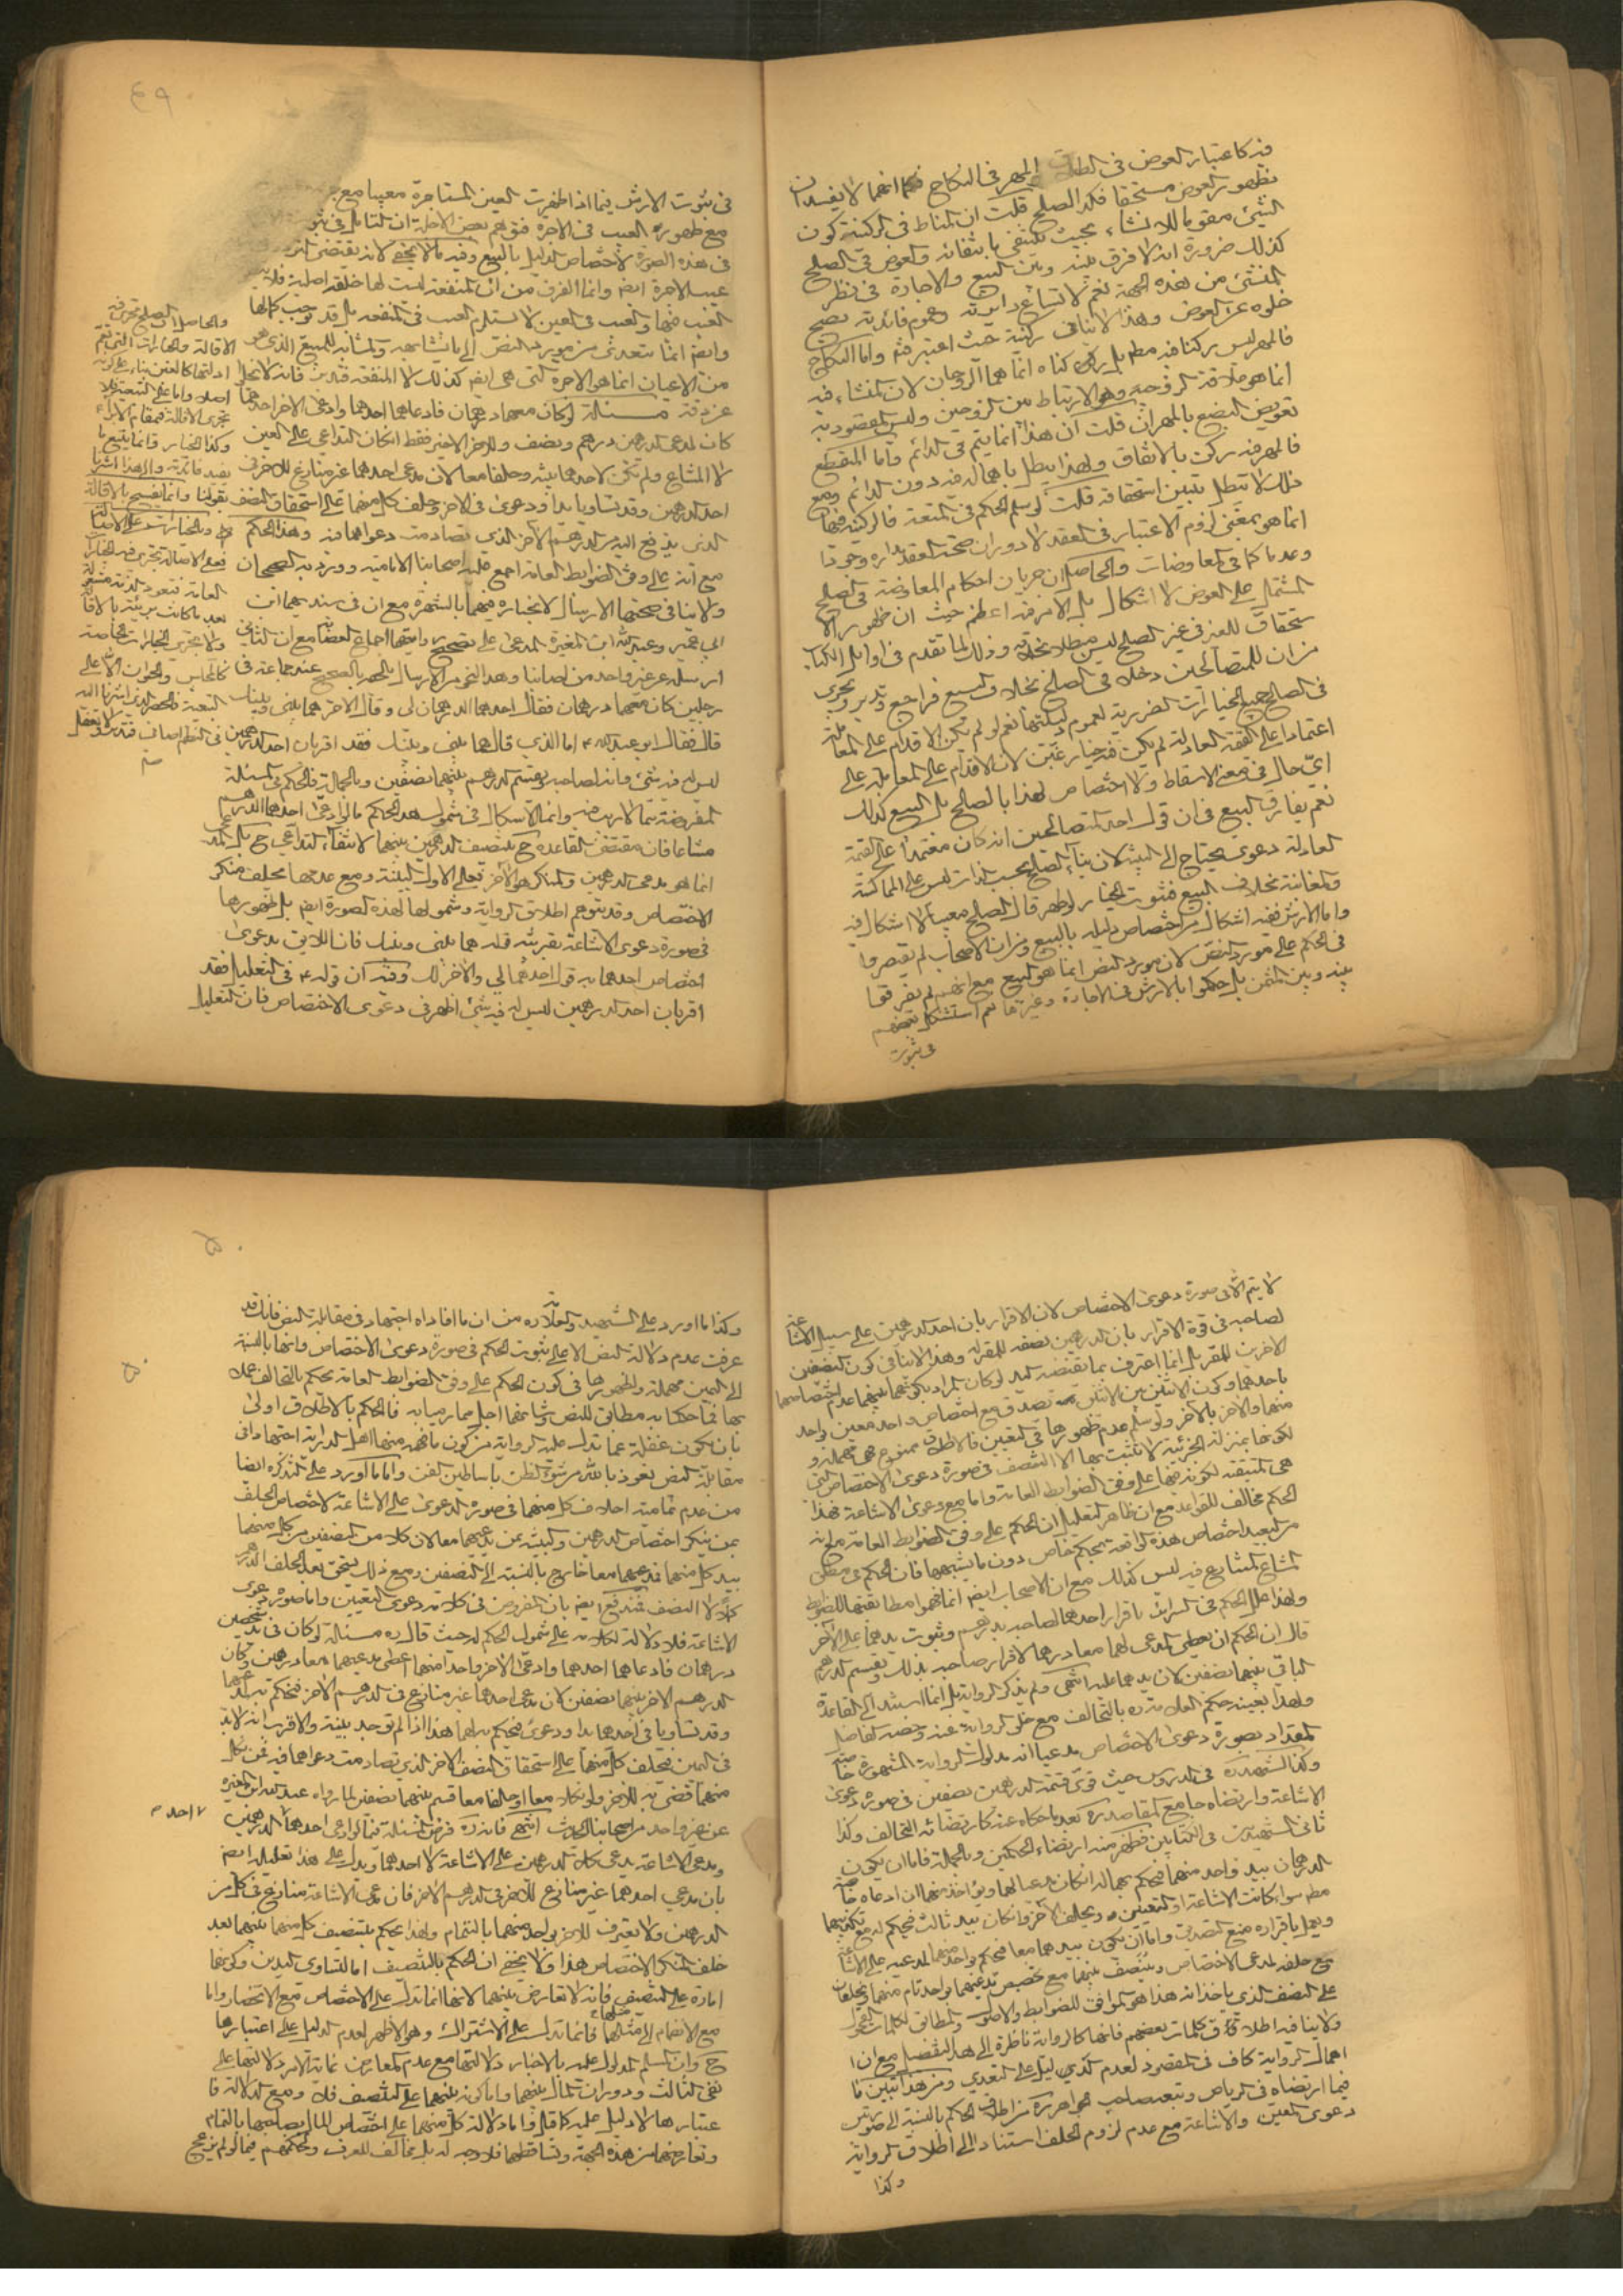 فيه كاعتبار العوض في الطلاق والمهر في النكاح فكما انهما لا يفسدان
بظهور العوض مستحقا فكذا الصلح قلت ان المناط في الركنية كون
الشيء مقوما للانشاء بحيث ينتفي بانتفائه والعوض في الصلح
كذلك ضرورة انه لا فرق بينه وبين البيع والاجارة في نظر
المنشئ من هذه الجهة نعم لاتساع دايرته وعموم فائدته يصح
خلوه عن العوض وهذا لا ينافي ركنيته حيث اعتبر فيه واما النكاح
فالمهر ليس ركنا فيه مطلقا بل ركناه انما هما الزوجان لان المنشاء فيه
انما هو علاقة الزوجية وهو الارتباط بين الزوجين وليس المقصود به
تعويض البضع بالمهر ان قلت ان هذا انما يتم في الدائم واما المنقطع
فالمهر فيه ركن بالاتفاق ولهذا يبطل باهماله فيه دون الدائم ومع
ذلك لا يبطل بتبين استحقاقه قلت لو سلم الحكم في المتعة فالركنية فيها
انما هو بمعنى لزوم الاعتبار في العقد لا دوران صحة العقد مداره وجودا
وعدما كما في المعاوضات والحاصل ان جريان احكام المعاوضة في الصلح
المشتمل على العوض لا اشكال بل الامر فيه اعظم حيث ان ظهور الا
ستحقاق للغير في غير الصلح ليس مبطلا بخلافه وذلك لما تقدم في اوائل الكتاب
من ان للمتصالحين دخلا في الصلح بخلاف البيع فراجع وتدبر ويجري
في الصلح جميع الخيارات الضررية لعموم دليلها نعم لو لم يكن الاقدام على المعاملة
اعتمادا على القيمة العادلة لم يكن فيه خيار غبن لان الاقدام على المعاملة على
اي حال في معنى الاسقاط ولا اختصاص لهذا بالصلح بل البيع كذلك
نعم يفارق البيع في ان قول احد المتصالحين انه كان معتمدا على القيمة
العادلة دعوى يحتاج الى البينة لان بناء الصلح بحسب الذات ليس على المماكسة
والمغابنة بخلاف البيع فثبوت الخيار لو ظهر مال الصلح معيبا لا اشكال فيه
واما الارش ففيه اشكال من اختصاص دليله بالبيع ومن ان الاصحاب لم يقتصروا
في الحكم على مورد النص لان مورد النص انما هو المبيع مع انهم لم يفرقوا
بينه وبين الثمن بل حكموا بالارش في الاجارة وغيرها نعم استشكل بعضهم
في ثبوت
٤٩
في ثبوت الارش فيما اذا ظهرت العين المستاجرة معيبا مع
مع ظهوره العيب في الاجرة فتوهم بعض الاجلة ان التامل في ثبو
في هذه الصورة لاختصاص الدليل بالبيع وفيه ما لا يخفى لانه يقتضي
عيب الاجرة ايضا وانما الفرق من ان المنفعة ليست لها خلقة اصلية فلا
العيب فيها والعيب في العين لا يستلزم العيب في المنفعة بل قد يوجب كمالها
وايضا انما يتعدى من مورد النص الى ما يشابهه والمشابه للمبيع الذي هو
من الاعيان انما هو الاجرة التي هي ايضا كذلك لا المنفعة فتدبر فانه لا يخلو
عن دقة مسئلة لو كان معهما درهمان فادعاهما احدهما وادعى الاخر احدهما
كان لمدعي الدرهمين درهم ونصف وللاخر الاخير فقط ان كان التداعي على العين
لا المشاع ولم تكن لاحدهما بينة وحلفا معا لان مدعي احدهما غير منازع للاخر في
احد الدرهمين وقد تساويا يدا ودعوى في الاخر وحلف كل منهما على استحقاق النصف
الذي يدفع اليه من الدرهم الاخر الذي تصادمت دعواهما فيه وهذا الحكم
مع انه على وفق الضوابط العامة اجمع عليه اصحابنا الامامية وورد به الصحيحان
ولا ينافي صحتهما الارسال لانجباره فيهما بالشهرة مع ان في سنديهما ابن
ابي عمير وعبد الله بن المغيرة المدعى على تصحيح روايتهما اجماع العصابة مع ان الثاني
ارسله عن غير واحد من اصحابنا وهذا النحو من الارسال ملحق بالصحيح عند جماعة في
رجلين كان معهما درهمان فقال احدهما الدرهمان لي وقال الاخر هما بيني وبينك
قال فقال ابو عبد الله ع اما الذي قال هما بيني وبينك فقد اقر بان احد الدرهمين
ليس له فيه شيء وانه لصاحبه ويقسم الدرهم بينهما نصفين وبالجملة فالحكم في المسئلة
المفروضة مما لا ريب فيه وانما الاشكال في شمول هذا الحكم ما لو ادعى احدهما الدرهم
مشاعا فان مقتضى القاعدة ح تنصيف الدرهمين بينهما لانتفاء التداعي ح بل المدعي
انما هو مدعي الدرهمين والمنكر هو الاخر فعلى الاول البينة ومع عدمها يحلف منكر
الاختصاص وقد يتوهم اطلاق الرواية وشمولها لهذه الصورة ايضا بل ظهورها
في صورة دعوى الاشاعة بقرينة قوله هما بيني وبينك فان اللايق بدعوى
اختصاص احدهما به قول احدهما لي والاخر لك وفيه ان قوله ع في التعليل فقد
اقر بان احد الدرهمين ليس له فيه شيء اظهر في دعوى الاختصاص فان التعليل
والحاصل ان الصلح تجري فيه
الاقالة والخيارات التي تعم
ادلتها كالغبن بناء على انه
اصلا واما على التبعية فلا
تجري الاقالة فيما قام الابراء
وكذا الخيار فانما يتبع ما
يفيد فائدته والى هذا اشرنا
بقولنا وانما يفسخ بالاقالة
والخيار بناء على الاصالة
فعلى الاصالة تجري فيه الخيارات
العامة فتعود الذمة مشغولة
بعد ما كانت بريئة بالاقالة
ولا تجري الخيارات الخاصة
كالمجلس والحيوان الا على
التبعية المحضة الذي اشرنا اليه
في النظم اصاف فتدبر ولا تغفل
منه
لا يتم الا في صورة دعوى الاختصاص لان الاقرار بان احد الدرهمين على سبيل الاشاعة
لصاحبه في قوة الاقرار بان الدرهمين نصفه للمقر له وهذا لا ينافي كون النصفين
الاخرين للمقر بل انما اعترف بما يقتضيه اليد لو كان المراد بكونهما بينهما عدم اختصاصهما
باحدهما وكون الاثنين بين الاثنين تصدق مع اختصاص واحد معين بواحد
منهما والاخر بالاخر ولو سلم عدم ظهورها في التعيين فالاطلاق ممنوع فهي مهملة و
لكونها بمنزلة الجزئية لا تثبت بها الا التنصيف في صورة دعوى الاختصاص التي
هي المتيقنة لكونه فيها على وفق الضوابط العامة واما مع دعوى الاشاعة فهذا
الحكم مخالف للقواعد مع ان ظاهر التعليل ان الحكم على وفق الضوابط العامة مع انه
من البعيد اختصاص هذه الواقعة بحكم خاص دون ما يشبهها فان الحكم في مطلق
المشاع المتنازع فيه ليس كذلك مع ان الاصحاب ايضا انما فهموا مطابقتها للضوابط
ولهذا علل الحكم في السرائر باقرار احدهما لصاحبه بدرهم وثبوت يدهما على الاخر
قال ان الحكم ان يعطى المدعي لهما معا درهما لاقرار صاحبه بذلك وتقسيم الدرهم
الباقي بينهما نصفين لان يدهما عليه انتهى ولم يذكر الرواية بل انما استند الى القاعدة
ولهذا بعينه حكم العلامة ره بالتحالف مع خلو الرواية عنه وخصه الفاضل
المقداد بصورة دعوى الاختصاص مدعيا انه مدلول الرواية المشهورة خاصة
وكذا الشهيد ره في الدروس حيث قوى قسمة الدرهمين نصفين في صورة دعوى
الاشاعة وارتضاه جامع المقاصد ره بعد ما حكاه عنه كارتضائه التحالف وكذا
ثاني الشهيدين في الكتابين فظهر منه ارتضاء الحكمين وبالجملة فاما ان يكون
الدرهمان بيد واحد منهما فيحكم بهما له ان كان مدعيا لهما ويؤاخذ منهما ان ادعاه خاصة
مطلقا سواء كانت الاشاعة او التعيين ويحلف الاخر وان كان بيد ثالث فيحكم له مع تكذيبهما
ويعمل باقراره مع التصديق واما ان يكون بيدهما معا فيحكم بواحد منهما لمدعيه على الاشاعة
مع حلفه لمدعي الاختصاص وينصف بينهما مع تخصيص مدعيهما بواحد تام منهما ويحلفان
على النصف الذي ياخذانه هذا هو الموافق للضوابط والاصول والمطابق لكلمات الفحول
ولا ينافيه اطلاق كلمات بعضهم فانها كالرواية ناظرة الى هذا التفصيل مع ان ا
اهمال الرواية كاف في المقصود لعدم الدليل على التعدي ومن هذا تبين ما
فيما ارتضاه في الرياض وتبعه صاحب الجواهر ره من اطلاق الحكم بالنسبة الى صورتي
دعوى التعيين والاشاعة مع عدم لزوم الحلف استنادا الى اطلاق الرواية
وكذا
٥٠
وكذا ما اورد على الشهيد والعلامة ره من ان ما افاداه اجتهاد في مقابلة النص فانك قد
عرفت عدم دلالة النص الا على ثبوت الحكم في صورة دعوى الاختصاص وانها بالنسبة
الى اليمين مهملة ولظهورها في كون الحكم على وفق الضوابط العامة يحكم بالتحالف عملا
بها فما حكما به مطابق للنص وشانهما اجل مما رميا به فالحكم بالاطلاق اولى
بان يكون غفلة عما تدل عليه الرواية من كون ما فهمه منها اهل الدراية اجتهادا في
مقابلة النص نعوذ بالله من سوء الظن باساطين الفن واما ما اورد على التذكرة ايضا
من عدم تمامية احلاف كل منهما في صورة الدعوى على الاشاعة لاختصاص الحلف
بمن ينكر اختصاص الدرهمين والبينة بمن يدعيهما معا لان كلا من النصفين من كل منهما
بيد كل منهما فمدعيهما معا خارج بالنسبة الى النصفين ومع ذلك يستحق بعد الحلف الدرهم
كلا لا النصف فمندفع ايضا بان المفروض في كلامه دعوى التعيين واما صورة دعوى
الاشاعة فلا دلالة لكلامه على شمول الحكم له حيث قال ره مسئلة لو كان في يد شخصين
درهمان فادعاهما احدهما وادعى الاخر واحدا منهما اعطى مدعيهما معا درهمين وكان
الدرهم الاخر بينهما نصفين لان مدعي احدهما غير منازع في الدرهم الاخر فيحكم به لمدعيهما
وقد تساويا في احدهما يدا ودعوى فيحكم به لهما هذا اذا لم توجد بينة والاقرب انه لا بد
في اليمين فيحلف كل منهما على استحقاق النصف الاخر الذي تصادمت دعواهما فيه فمن نكل
منهما قضي به للاخر ولو نكلا معا او حلفا معا قسم بينهما نصفين لما رواه عبد الله بن المغيرة
عن غير واحد من اصحابنا الحديث انتهى فانه ره فرض المسئلة فيما لو ادعى احدهما الدرهمين
ومدعي الاشاعة يدعي كلا الدرهمين على الاشاعة لا احدهما ويدل على هذا تعليله ايضا
بان مدعي احدهما غير منازع للاخر في الدرهم الاخر فان مدعي الاشاعة منازع في كل من
الدرهمين ولا يعترف للاخر بواحد منهما بالتمام ولهذا يحكم بتنصيف كل منهما بينهما بعد
حلف المنكر الاختصاص هذا ولا يخفى ان الحكم بالتنصيف اما لتساوي اليدين وكونهما
امارة على التنصيف فانه لا تعارض بينهما لانها انما تدل على الاختصاص مع الانحصار واما
مع الانضمام الى مثلها فانما تدل على الاشتراك وهو الاظهر لعدم الدليل على اعتبارها
ح وان المسلم المدلول عليه بالاخبار دلالتها مع عدم المعارض غاية الامر دلالتها على
نفي الثالث ودوران المال بينهما واما كونه بينهما على التنصيف فلا ومع الدلالة فا
عتبارها لا دليل عليه كما قال واما دلالة كل منهما على اختصاص المال بصاحبها بالتمام
وتعارضهما من هذه الجهة وتساقطهما فلا وجه له بل مخالف للعرف ولحكمهم فيما لو لم يرجح
احد
٥٠